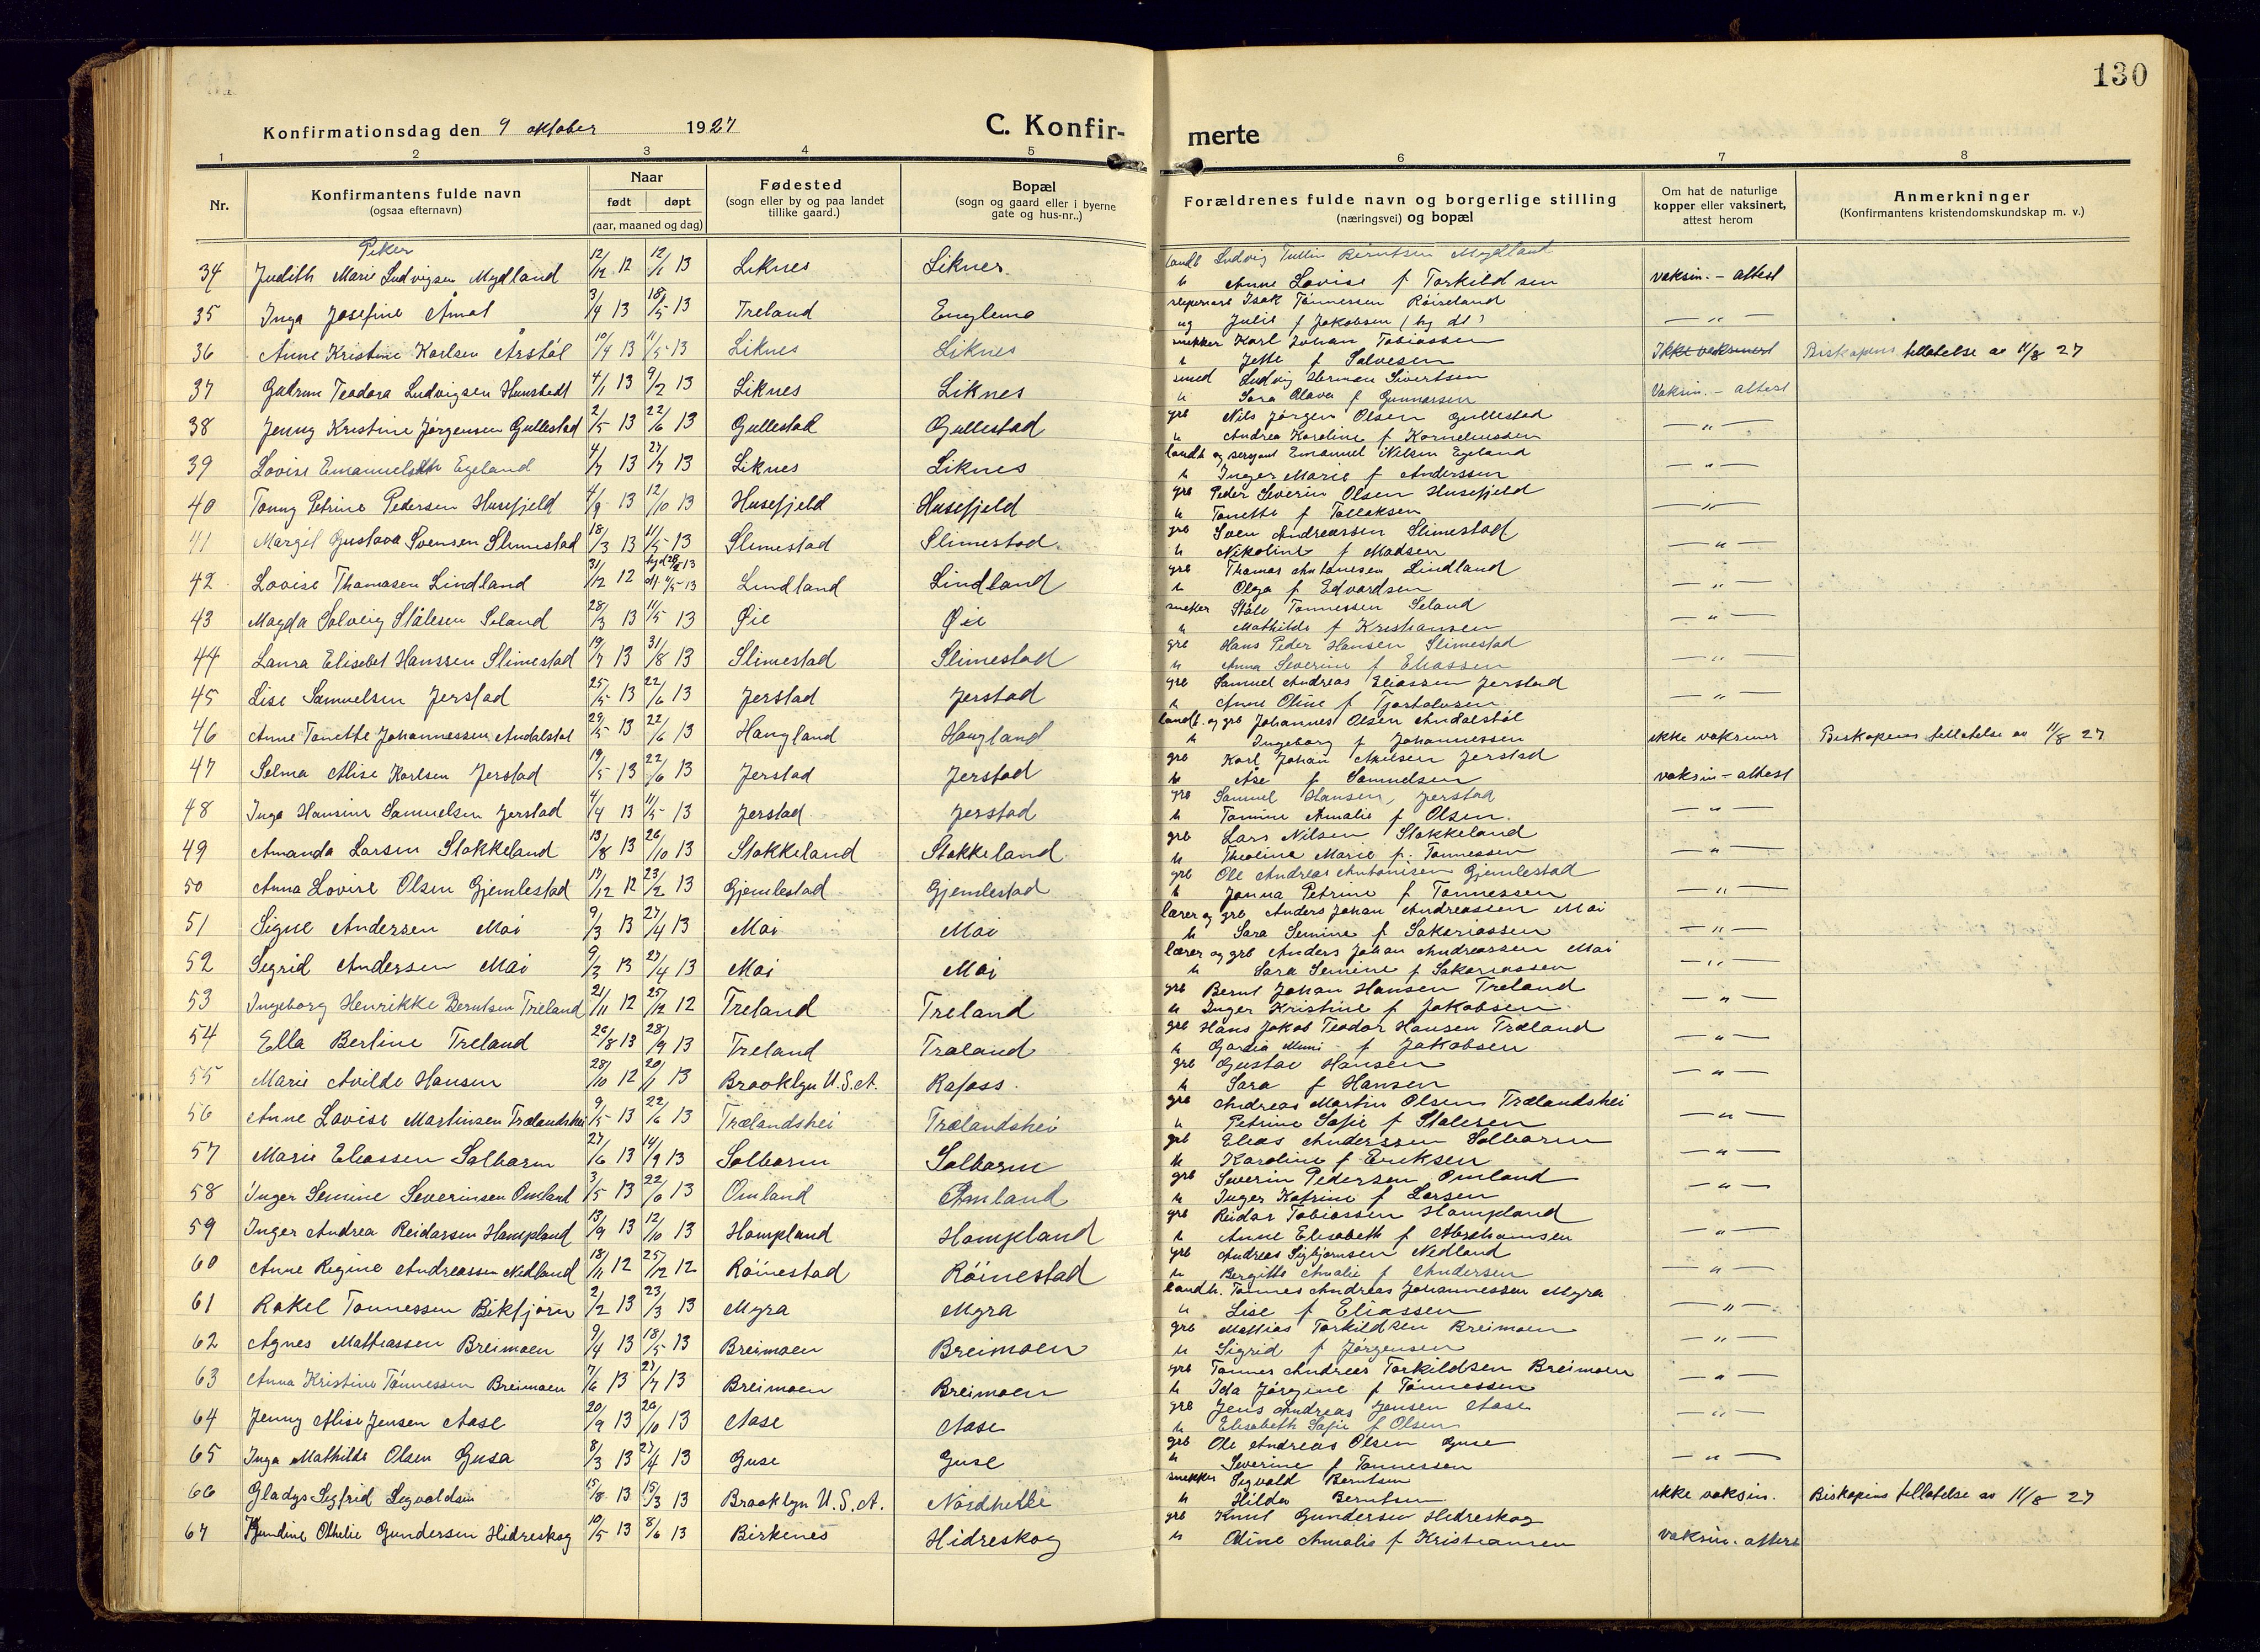 130
Konfirmationsdag den 9 oktober 1927
C. Konfir-
merte
1 2 3 4 5 6 7 8
Nr.
Konfirmantens fulde navn
(ogsaa efternavn)
Naar
født døpt
(aar, maaned og dag)
Fødested
(sogn eller by og paa landet
tillike gaard.)
Bopæl
(sogn og gaard eller i byerne
gate og hus-nr.,)
Forældrenes fulde navn og borgerlige stilling
(næringsvei) og bopæl
Om hat de naturlige
kopper eller vaksinert,
attest herom
Anmerkninger
(Konfirmantens kristendomskundskap m. v.)
Piker
34 Judith Marie Ludvigsen Mydland 12/12 12 12/1 13 Liknes Liknes
landb Ludvig Tullin Berntsen Mydland
h Anne Lovise f Torkildsen vaksin. - attest
35 Inga Josefine Åmot 3/4 13 18/5 13 Treland Englemo
Isak Tønnesen Röiseland
ug Julie f Jakobsen — " —
36 Anne Kristine Karlsen Årstöl 10/4 13 11/5 13 Liknes Liknes
snekker Karl Johan Tobiassen
h Jette f Salvesen Ikke vaksinert Biskopens tillatelse av 11/8 27
37 Gudrun Teodora Ludvigsen Hunstedt 4/1 13 9/2 13 Liknes Liknes
smed Ludvig Herman Sivertsen
h Sara Olava f Gunnarsen Vaksin. - attest
38 Jenny Kristine Jørgensen Gullestad 2/5 13 22/6 13 Gullestad Gullestad
grb Nils Jørgen Olsen Gullestad
h Andrea Karoline f Korneliussen — " —
39 Lovise Emanuels Egeland 4/7 13 27/7 13 Liknes Liknes
landb og sersjant Emanuel Nilsen Egeland
h Inger Marie f Anderssen — " —
40 Tonny Petrine Pedersen Husefjeld 4/9 13 12/10 13 Husefjeld Husefjeld
grb Peder Severin Olsen Husefjeld
h Tonette f Tolleksen — " —
41 Margit Gustava Svensen Slimestad 18/3 13 11/5 13 Slimestad Slimestad
grb Sven Andreassen Slimestad
h Nikoline f Madsen — " —
42 Lovise Thomasen Lindland 31/12 12 4/5 13 Lindland Lindland
grb Thomas Antonisen Lindland
h Olga f Edvardsen — " —
43 Magda Solveig Stålesen Seland 28/3 13 11/5 13 Øie Øie
snekker Ståle Tønnessen Seland
h Mathilde f Kristiansen — " —
44 Laura Elisebet Hanssen Slimestad 19/7 13 31/8 13 Slimestad Slimestad
grb Hans Peder Hansen Slimestad
h Anna Severine f Eliassen — " —
45 Lise Samuelsen Jerstad 25/5 13 22/6 13 Jerstad Jerstad
grb Samuel Andreas Eliassen Jerstad
h Anne Oline f Tjøstolvsen — " —
46 Anne Tonette Johannessen Andalstöl 29/5 13 22/6 13 Haugland Haugland
landb. og grb Johannes Olsen Andalstöl
h Ingeborg f Johannessen ikke vaksiner Biskopens tillatelse av 11/8 27
47 Selma Alise Karlsen Jerstad 19/5 13 22/6 13 Jerstad Jerstad
grb Karl Johan Akselsen Jerstad
h Åse f Samuelsen vaksin - attest
48 Inga Hansine Samuelsen Jerstad 4/4 13 11/5 13 Jerstad Jerstad
grb Samuel Hansen, Jerstad
h Tomine Amalie f Olsen. — " —
49 Amanda Larsen Stokkeland 13/8 13 26/10 13 Stokkeland Stokkeland
grb Lars Nilsen Stokkeland
h Theoline Marie f. Tønnessen — " —
50 Anna Lovise Olsen Gjemlestad 19/12 12 23/2 13 Gjemlestad Gjemlestad
grb Ole Andreas Antonisen Gjemlestad
h Janna Petrine f Tønnessen — " —
51 Signe Andersen Moi 9/3 13 27/4 13 Moi Moi
lærer og grb Anders Johan Andreassen Moi
h Sara Semine f Sakariassen — " —
52 Sigrid Andersen Moi 9/3 13 27/4 13 Moi Moi
lærer og grb Anders Johan Andreassen Moi
h Sara Semine f Sakariassen — " —
53 Ingeborg Henrikke Berntsen Treland 21/11 12 25/12 12 Treland Treland
grb Bernt Johan Hansen Treland
h Inger Kristine f Jakobsen — " —
54 Ella Bertine Treland 26/8 13 28/9 13 Treland Træland
grb Hans Jakob Teodor Hansen Træland
h f Jakobsen — " —
55 Marie Avilde Hansen 28/10 12 20/1 13 Brooklyn U.S.A. Rafoss
grb Gustav Hansen
h Sara f Hansen — " —
56 Anne Lovise Martinsen Trælandshei 9/5 13 22/6 13 Trælandshei Trælandshei
grb Andreas Martin Olsen Trælandshei
h Petrine Sofie f Stålesen — " —
57 Marie Eliassen Solbarm 27/6 13 14/9 13 Solbarm Solbarm
grb Elias Anderssen Solbarm
h Karoline f Eriksen — " —
58 Inger Semine Severinsen Omland 3/5 13 22/6 13 Omland Omland
grb Severin Pedersen Omland
h Inger Katrine f Larsen — " —
59 Inger Andrea Reidarsen Hampland 13/9 13 12/10 13 Hampland Hampland
grb Reidar Tobiassen Hampland
h Anne Elisabeth f Abrahamsen — " —
60 Anne Regine Andreassen Nedland 18/11 12 25/12 12 Röinestad Röinestad
grb Andreas Sigbjørnsen Nedland
h Bergitte Amalie f Andersen — " —
61 Rakel Tønnessen Bikfjörn 2/2 13 23/3 13 Myra Myra
landb. Tønnes Andreas Johannessen Myra
h Lise f Eliassen — " —
62 Agnes Mathiassen Breimoen 9/4 13 18/5 13 Breimoen Breimoen
grb Mathias Torkildsen Breimoen
h Sigrid f Jørgensen — " —
63 Anna Kristine Tønnessen Breimoen 7/6 13 27/7 13 Breimoen Breimoen
grb Tønnes Andreas Torkildsen Breimoen
h Ida Jørgine f Tønnessen — " —
64 Jenny Alise Jensen Aase 20/9 13 26/10 13 Aase Aase
grb Jens Andreas Jensen Aase
h Elisabeth Sofie f Olsen — " —
65 Inga Mathilde Olsen Gusa 8/3 13 27/4 13 Guse Guse
grb Ole Andreas Olsen Guse
h Severine f Tønnessen — " —
66 Gladys Sigfrid Sigvaldsen 15/8 13 15/3 13 Brooklyn U.S.A. Nordhelle
snekker Sigvald Berntsen
h Hilda Berntsen ikke vaksin. Biskopens tillatelse av 11/8 27
67 Othelie Gundersen Hidreskog 10/5 13 8/6 13 Birkenes Hidreskog
grb Knut Gundersen Hidreskog
h Odine Amalie f Kristiansen vaksin. attest